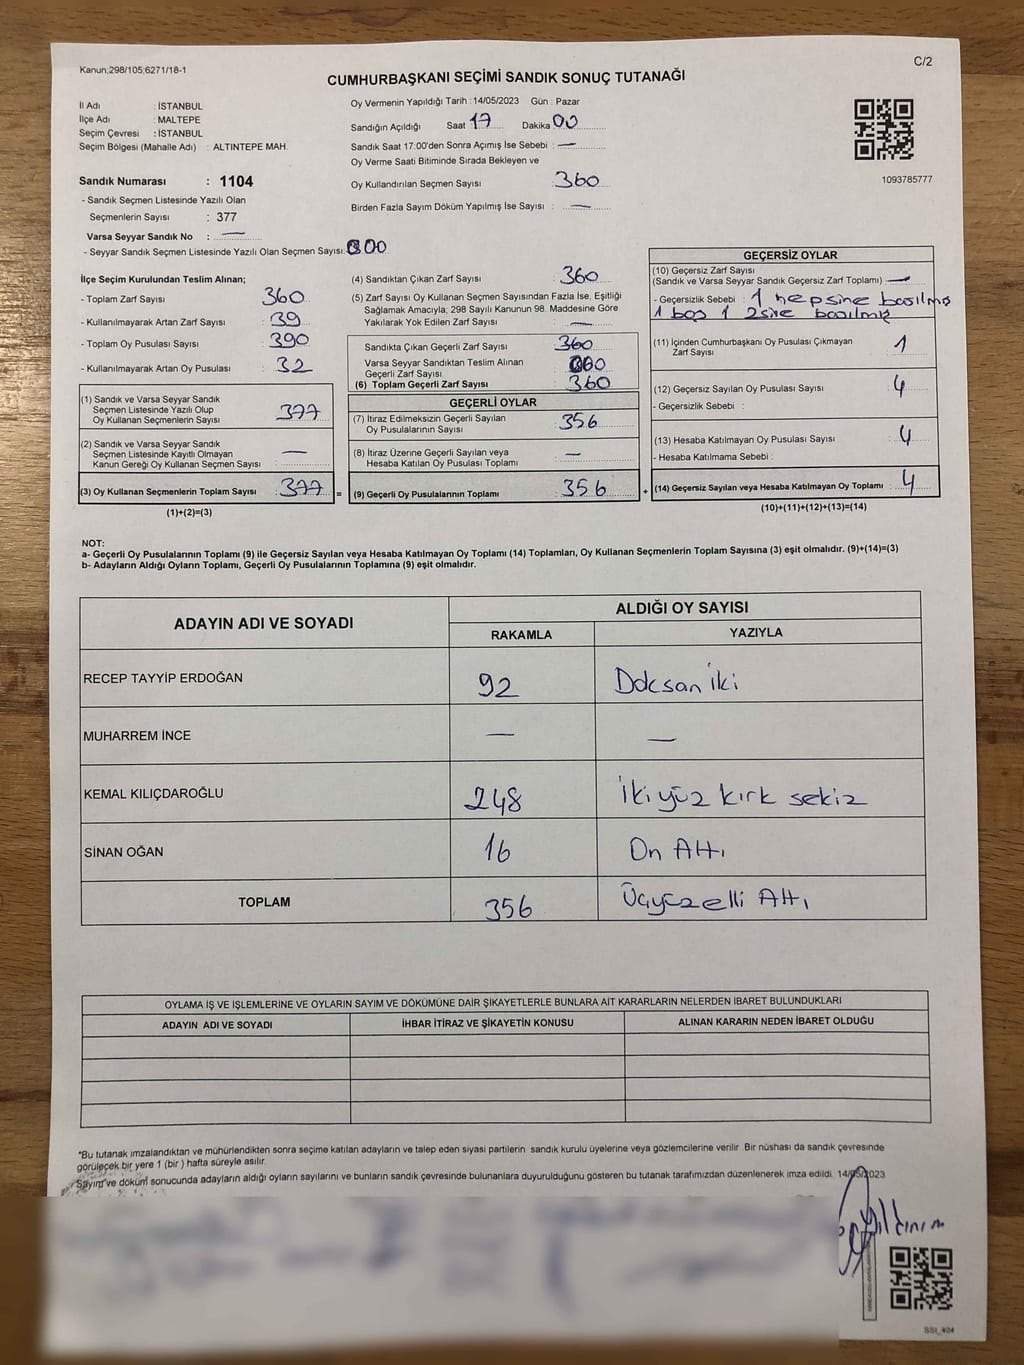 Kanun;298/105;6271/18-1
C/2
CUMHURBAŞKANI SEÇİMİ SANDIK SONUÇ TUTANAĞI
İl Adı : İSTANBUL
İlçe Adı : MALTEPE
Seçim Çevresi : İSTANBUL
Seçim Bölgesi (Mahalle Adı) : ALTINTEPE MAH.
Sandık Numarası : 1104
- Sandık Seçmen Listesinde Yazılı Olan
Seçmenlerin Sayısı : 377
Varsa Seyyar Sandık No : —
- Seyyar Sandık Seçmen Listesinde Yazılı Olan Seçmen Sayısı: 000
Oy Vermenin Yapıldığı Tarih : 14/05/2023 Gün : Pazar
Sandığın Açıldığı Saat 17 Dakika 00
Sandık Saat 17:00'den Sonra Açımış İse Sebebi : —
Oy Verme Saati Bitiminde Sırada Bekleyen ve
Oy Kullandırılan Seçmen Sayısı : 360
Birden Fazla Sayım Döküm Yapılmış İse Sayısı : —
1093785777
İlçe Seçim Kurulundan Teslim Alınan;
- Toplam Zarf Sayısı : 360
- Kullanılmayarak Artan Zarf Sayısı : 39
- Toplam Oy Pusulası Sayısı : 390
- Kullanılmayarak Artan Oy Pusulası : 32
(1) Sandık ve Varsa Seyyar Sandık
Seçmen Listesinde Yazılı Olup
Oy Kullanan Seçmenlerin Sayısı : 377
(2) Sandık ve Varsa Seyyar Sandık
Seçmen Listesinde Kayıtlı Olmayan
Kanun Gereği Oy Kullanan Seçmen Sayısı : —
(3) Oy Kullanan Seçmenlerin Toplam Sayısı : 377 =
(1)+(2)=(3)
(4) Sandıktan Çıkan Zarf Sayısı : 360
(5) Zarf Sayısı Oy Kullanan Seçmen Sayısından Fazla İse, Eşitliği
Sağlamak Amacıyla; 298 Sayılı Kanunun 98. Maddesine Göre
Yakılarak Yok Edilen Zarf Sayısı : —
Sandıkta Çıkan Geçerli Zarf Sayısı : 360
Varsa Seyyar Sandıktan Teslim Alınan
Geçerli Zarf Sayısı
(6) Toplam Geçerli Zarf Sayısı : 360
GEÇERLİ OYLAR
(7) İtiraz Edilmeksizin Geçerli Sayılan
Oy Pusulalarının Sayısı : 356
(8) İtiraz Üzerine Geçerli Sayılan veya
Hesaba Katılan Oy Pusulası Toplamı : —
(9) Geçerli Oy Pusulalarının Toplamı : 356 +
GEÇERSİZ OYLAR
(10) Geçersiz Zarf Sayısı
(Sandık ve Varsa Seyyar Sandık Geçersiz Zarf Toplamı) : —
- Geçersizlik Sebebi : 1 hepsine basılmış
1 boş 1 2sine basılmış
(11) İçinden Cumhurbaşkanı Oy Pusulası Çıkmayan
Zarf Sayısı : 1
(12) Geçersiz Sayılan Oy Pusulası Sayısı : 4
- Geçersizlik Sebebi :
(13) Hesaba Katılmayan Oy Pusulası Sayısı : 4
- Hesaba Katılmama Sebebi :
(14) Geçersiz Sayılan veya Hesaba Katılmayan Oy Toplamı : 4
(10)+(11)+(12)+(13)=(14)
NOT:
a- Geçerli Oy Pusulalarının Toplamı (9) ile Geçersiz Sayılan veya Hesaba Katılmayan Oy Toplamı (14) Toplamları, Oy Kullanan Seçmenlerin Toplam Sayısına (3) eşit olmalıdır. (9)+(14)=(3)
b- Adayların Aldığı Oyların Toplamı, Geçerli Oy Pusulalarının Toplamına (9) eşit olmalıdır.
ADAYIN ADI VE SOYADI
ALDIĞI OY SAYISI
RAKAMLA YAZIYLA
RECEP TAYYİP ERDOĞAN 92 Doksan iki
MUHARREM İNCE — —
KEMAL KILIÇDAROĞLU 248 İki yüz kırk sekiz
SİNAN OĞAN 16 On Altı
TOPLAM 356 Üçyüz elli Altı
OYLAMA İŞ VE İŞLEMLERİNE VE OYLARIN SAYIM VE DÖKÜMÜNE DAİR ŞİKAYETLERLE BUNLARA AİT KARARLARIN NELERDEN İBARET BULUNDUKLARI
ADAYIN ADI VE SOYADI İHBAR İTİRAZ VE ŞİKAYETİN KONUSU ALINAN KARARIN NEDEN İBARET OLDUĞU
*Bu tutanak imzalandıktan ve mühürlendikten sonra seçime katılan adayların ve talep eden siyasi partilerin sandık kurulu üyelerine veya gözlemcilerine verilir. Bir nüshası da sandık çevresinde
görülecek bir yere 1 (bir ) hafta süreyle asılır.
Sayım ve döküm sonucunda adayların aldığı oyların sayılarını ve bunların sandık çevresinde bulunanlara duyurulduğunu gösteren bu tutanak tarafımızdan düzenlenerek imza edildi. 14/05/2023